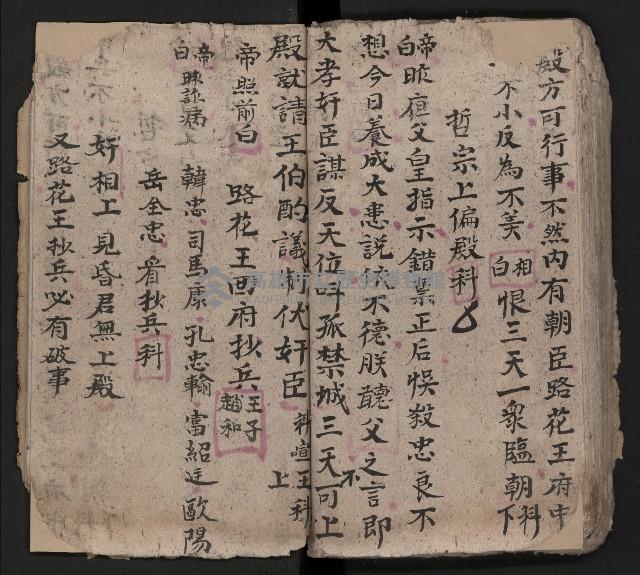 殿方可行事不然內有朝臣路花王府中
不小反為不美 相白 恨三天一眾臨朝科下
哲宗上偏殿科
帝白 昨宣父皇指示錯禁正后悮殺忠良不
想今日養成大患說朕不德朕聽父之言即
大孝奸臣謀反天位不孤禁城三天可上
殿就請王伯酌議制伏奸臣 科宣王科上
帝照前白 路花王回府抄兵 王子趙和
帝白 昨詐病 韓忠司馬康孔忠輸富紹廷歐陽
岳全忠看抄兵科
奸相上見昏君無上殿
又路花王抄兵必有破事